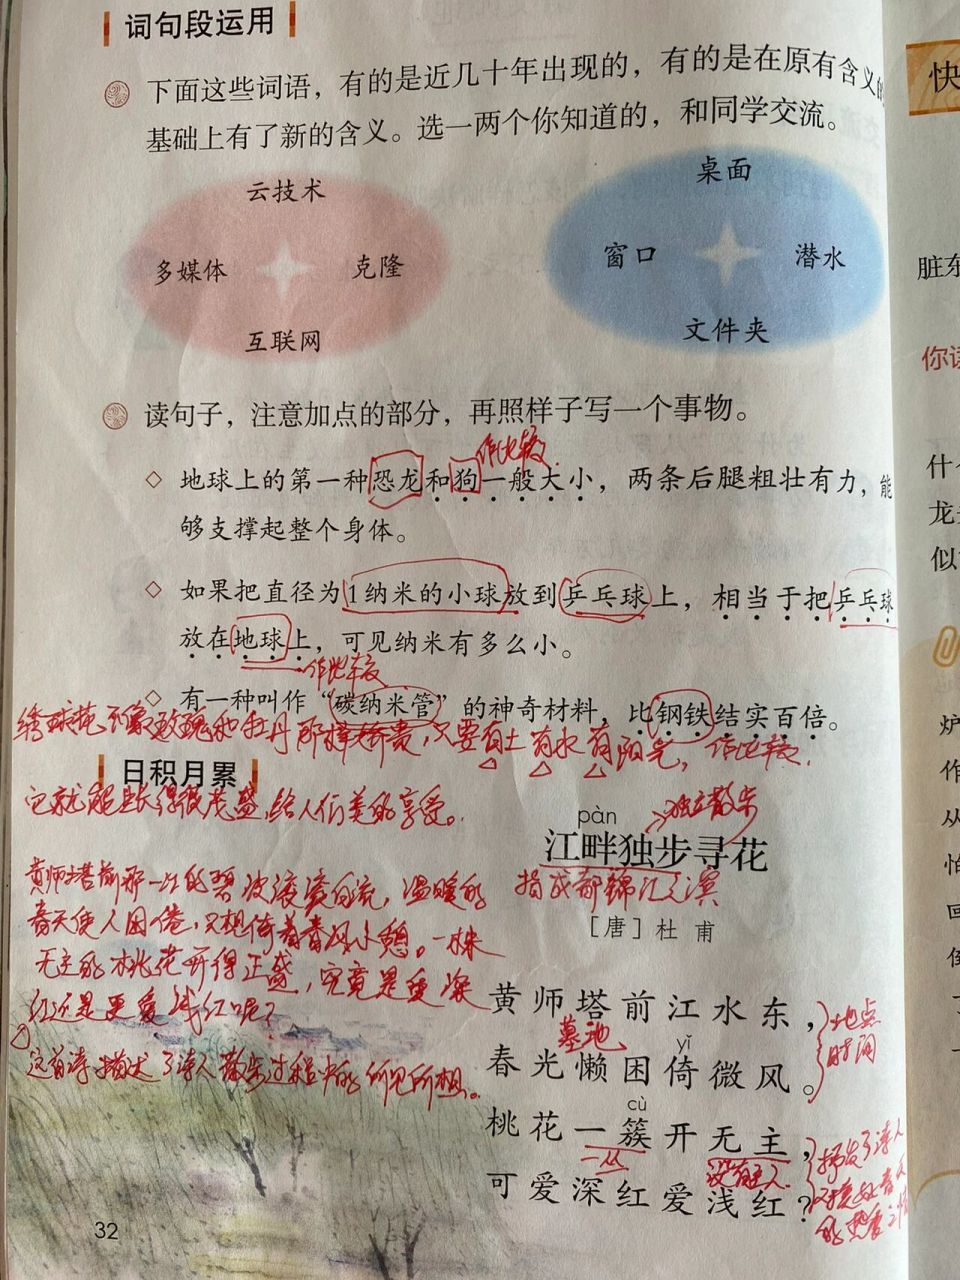 词句段运用
下面这些词语，有的是近几十年出现的，有的是在原有含义的
基础上有了新的含义。选一两个你知道的，和同学交流。
云技术
多媒体
克隆
互联网
桌面
窗口
潜水
文件夹
读句子，注意加点的部分，再照样子写一个事物。
作比较
地球上的第一种恐龙和狗一般大小，两条后腿粗壮有力，能
够支撑起整个身体。
如果把直径为1纳米的小球放到乒乓球上，相当于把乒乓球
放在地球上，可见纳米有多么小。
作比较
有一种叫作“碳纳米管”的神奇材料，比钢铁结实百倍。
绣球花不像玫瑰和牡丹那样娇贵，只要有土有水有阳光，作比较.
日积月累
它就能生长得很茂盛，给人们美的享受。
独立散步
pàn
江畔独步寻花
指成都锦江之滨
[唐]杜甫
黄师塔前那一江的碧波滚滚东流，温暖的
春天使人困倦，只想倚着春风小憩。一株
无主的桃花开得正盛，究竟是爱深
红还是更爱浅红呢？
这首诗描述了诗人散步过程中的所见所想。
黄师塔前江水东，
墓地
地点
时间
yǐ
春光懒困倚微风。
cù
桃花一簇开无主，
一丛
没有主人.
可爱深红爱浅红？
抒发了诗人
对美好春天
的热爱之情
32
快
脏东
你读
什
龙
似
炉
作
从